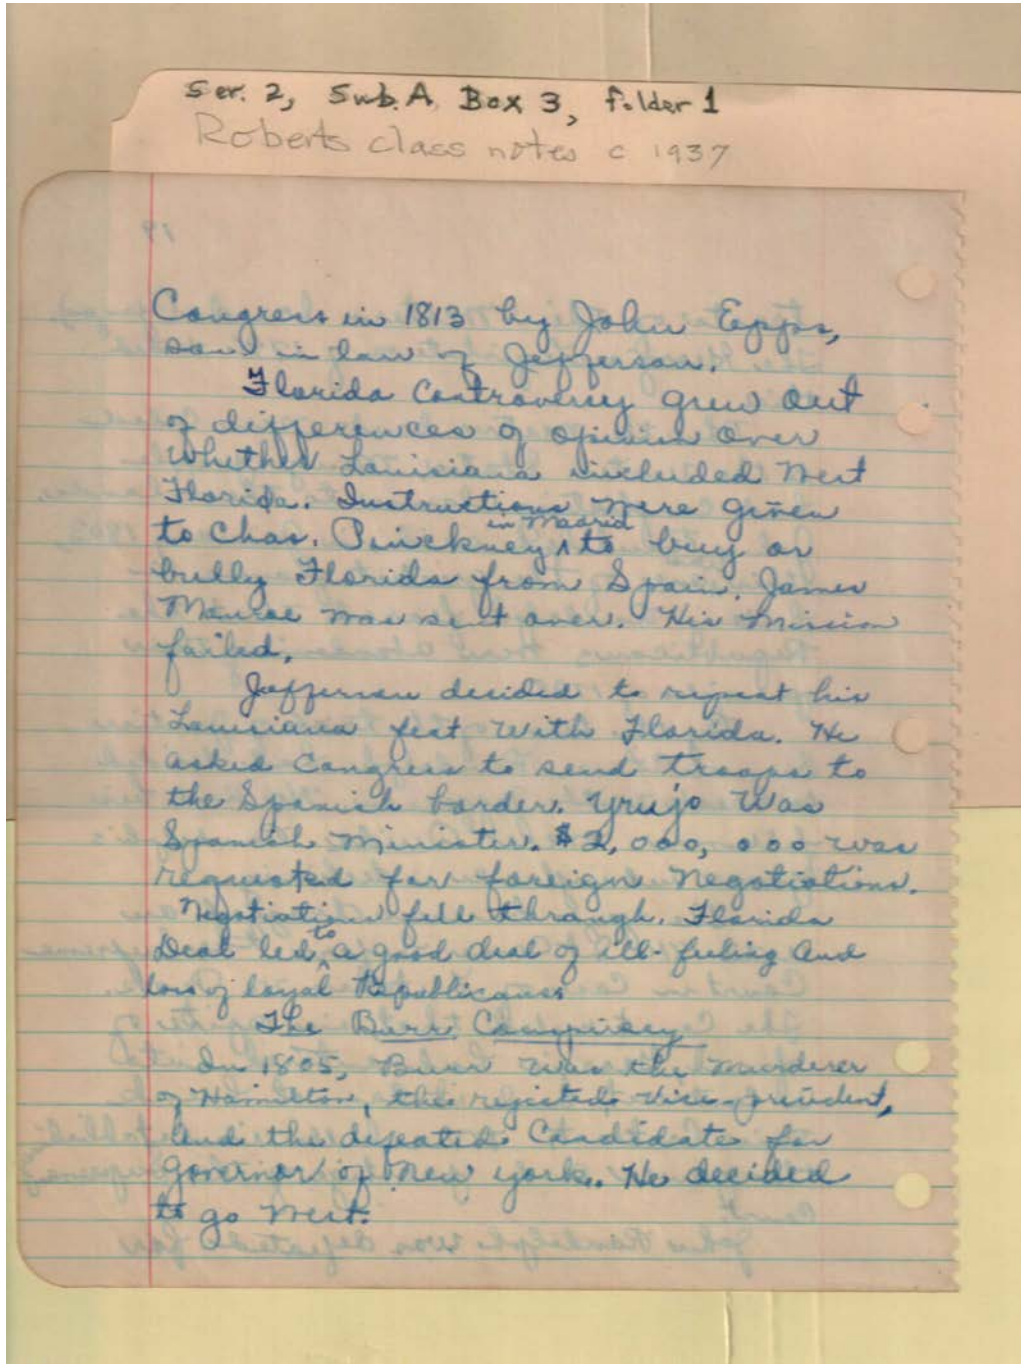 Ser. 2, Sub. A Box 3, folder 1
Roberts class notes c 1937
19
Congress in 1813 by John Epps,
son in law of Jefferson.
Florida Controversy grew out
of differences of opinion over
Whether Louisiana included West
Florida. Instructions were given
to Chas. Pinckney ^ in Madrid to buy or
bully Florida from Spain. James
Monroe was sent over. His mission
failed.
Jefferson decided to repeat his
Louisiana feat with Florida. He
asked Congress to send troops to
the Spanish border. Yrujo was
Spanish Minister. $2,000,000 was
requested for foreign Negotiations.
Negotiations fell through. Florida
Deal led ^ to a good deal of ill-feeling and
loss of loyal Republicans
The Burr Conspiracy
In 1805, Burr was the murderer
of Hamilton, the rejected Vice-president,
and the defeated Candidate for
Governor of New York. He decided
to go West.